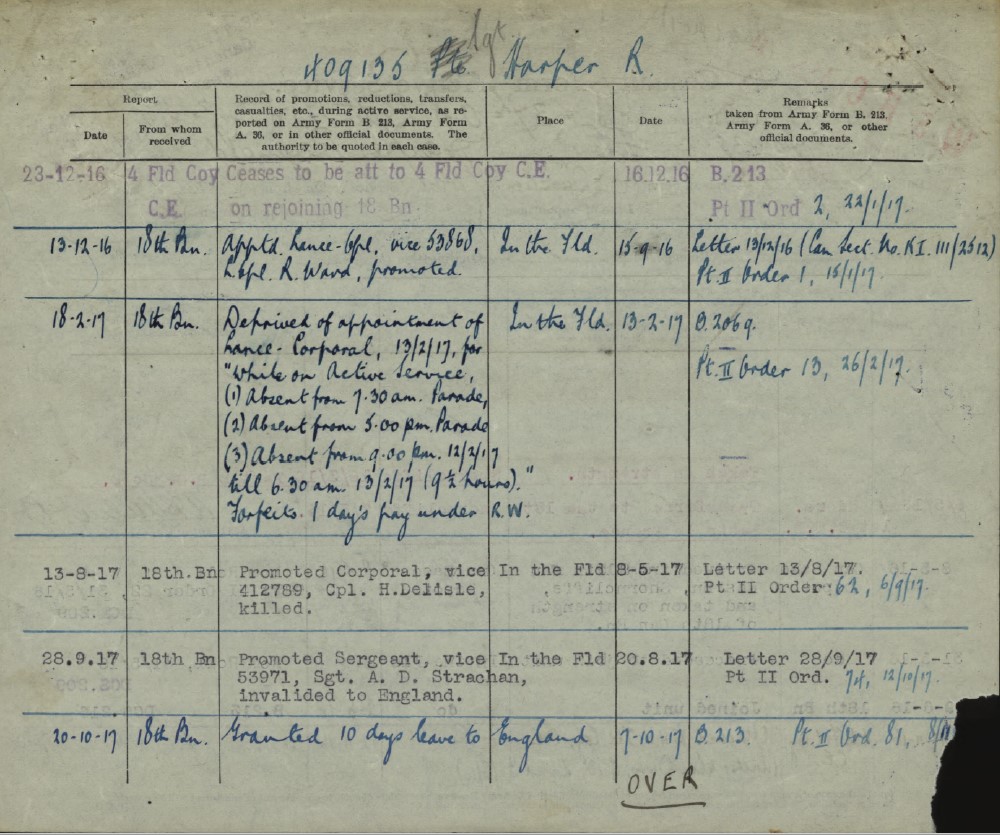 409135 Sgt Harper R.
Report
Date
From whom
received
Record of promotions, reductions, transfers,
casualties, etc., during active service, as re-
ported on Army Form B. 213, Army Form
A. 36, or in other official documents. The
authority to be quoted in each case.
Place
Date
Remarks
taken from Army Form B. 213,
Army Form A. 36, or other
official documents.
23-12-16 4 Fld Coy Ceases to be att to 4 Fld Coy C.E. 16.12.16 B.213
C.E. on rejoining 18 Bn Pt II Ord 2, 22/1/17.
13-12-16 18th Bn. Apptd. Lance-Cpl, vice 53868, In the Fld 15-9-16 Letter 13/12/16 (Can. Sect. No. K I. 111/2512)
L.Cpl. R. Ward, promoted. Pt. II Order 1, 15/1/17.
18-2-17 18th Bn. Deprived of appointment of In the Fld. 13-2-17 B.2069.
Lance-Corporal, 13/2/17, for
"While on Active Service, Pt. II Order 13, 26/2/17.
(1) Absent from 7.30 am. Parade,
(2) Absent from 5.00 pm. Parade
(3) Absent from 9.00 pm. 12/2/17
till 6.30 am. 13/2/17 (9½ hours)."
Forfeits 1 day's pay under R.W.
13-8-17 18th.Bn Promoted Corporal, vice In the Fld 8-5-17 Letter 13/8/17.
412789, Cpl. H.Delisle, Pt II Order 62, 6/9/17.
killed.
28.9.17 18th Bn Promoted Sergeant, vice In the Fld 20.8.17 Letter 28/9/17
53971, Sgt. A. D. Strachan, Pt II Ord. 74, 12/10/17.
invalided to England.
20-10-17 18th Bn. Granted 10 days leave to England 7-10-17 B.213. Pt. II Ord. 81,
OVER